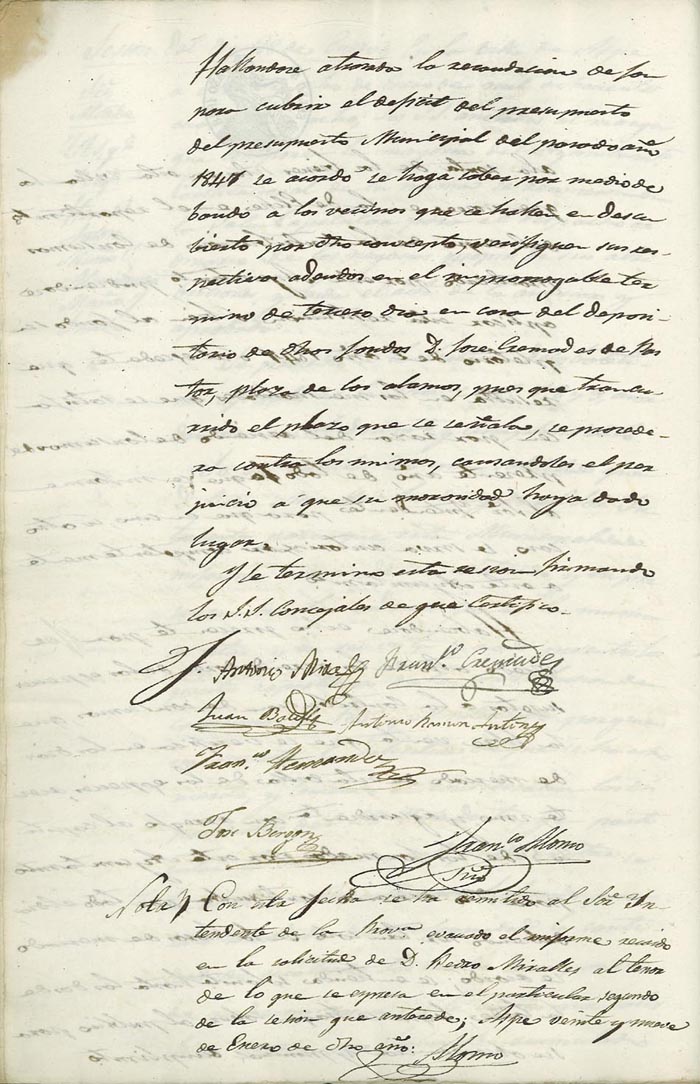 Hallandose atrasada la recaudacion de lo q.e
para cubrir el deficit del presupuesto
del presupuesto Municipal del pasado año
1847 se acordó se haga saber por medio de
bando a los vecinos que se hallen en descu
bierto por dho concepto, verifiquen sus res-
pectivos adeudos en el improrrogable ter
mino de tercero dia en casa del deposi-
tario de dhos fondos D. Jose Cremades de Pas
tor, plaza de los alamos, pues que trancu
rrido el plazo que se señala, se procede-
ra contra los mismos, causandoles el per
juicio á que su morosidad haya dado
lugar.
Y se termino esta sesion firmando
los S.S. Concejales de que certifico.
Antonio Mira Fran.co Cremades
Juan Antonio Ramon
Fran.co Hernandez
Jose
Fran.co Alorno
Srio
Nota) Con esta fecha se ha remitido al Sor In-
tendente de la Prova evacuado el informe recaido
en la solicitud de D. Pedro Miralles al tenor
de lo que se espresa en el particular segundo
de la sesion que antecede; Aspe veinte y nueve
de Enero de dho año: Alorno